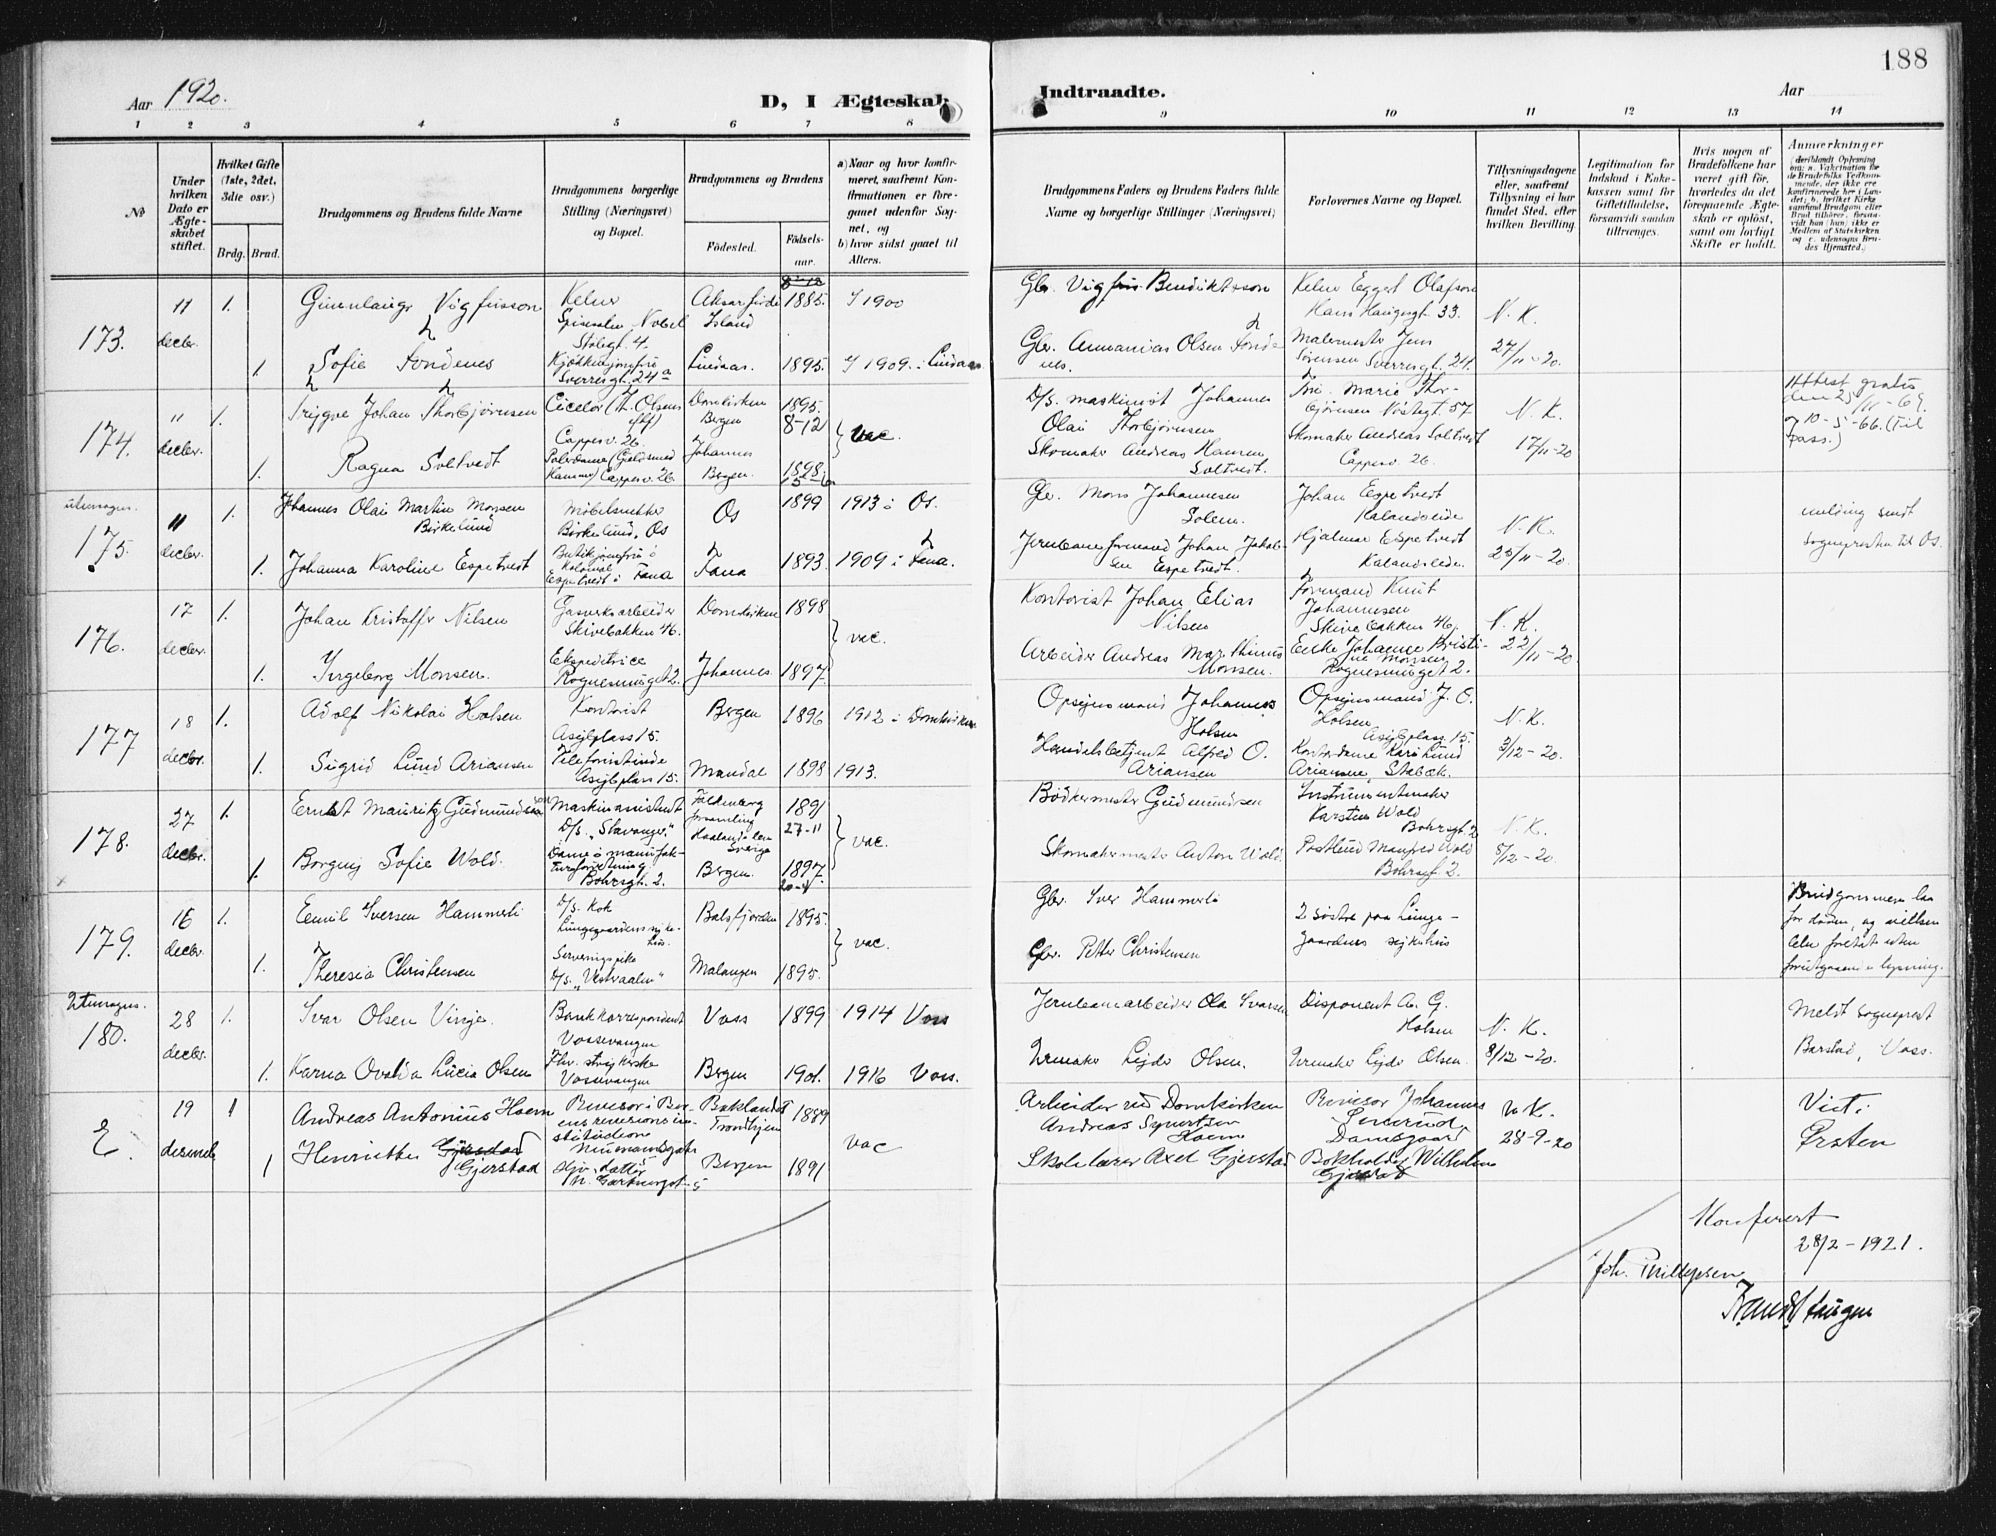 188
Aar 1920.
D, I Ægteskab
Indtraadte.
Aar
1 2 3 4 5 6 7 8
9 10 11 12 13 14
No
Under hvilken Dato er Ægteskabet stiftet.
Hvilket Gifte (1ste, 2det, 3die osv.)
Brdg. Brud.
Brudgommens og Brudens fulde Navne
Brudgommens borgerlige Stilling (Næringsvei) og Bopæl.
Brudgommens og Brudens
Fødested.
Fødselsaar.
a) Naar og hvor konfirmeret, saafremt Konfirmationen er foregaaet udenfor Sognet, og
b) hvor sidst gaaet til Alters.
Brudgommens Faders og Brudens Faders fulde Navne og borgerlige Stillinger (Næringsvei)
Forlovernes Navne og Bopæl.
Tillysningsdagene eller, saafremt Tillysning ei har fundet Sted, efter hvilken Bevilling.
Legitimation for Indskud i Enkekassen samt for Giftetilladelse, forsaavidt saadan tiltrænges.
Hvis nogen af Brudefolkene har været gift før, hvorledes da det foregaaende Ægteskab er opløst, samt om lovligt Skifte er holdt.
Anmærkninger
173.
11 decbr.
1.
Gunnlaugr Vigfusson
Kelner
Spisesalen Nobel
Stølegt. 4.
Island
8-12
1885.
1900
Glr. Vigfus Benediktsson
Kelner Eggert Olafson
Hans Haugesgt. 33.
N. K.
27/11-20.
1.
Sofie Fondenes
Kjøkkenjomfru
Sverresgt. 24a
Lindaas.
1895.
1909 i Lindaas
Malermester Jens
Sørensen Sverresgt. 24.
174.
11 decbr.
1.
Trygve Johan Thorbjørnsen
Cappesv. 26.
Domkirken
Bergen
1895.
8-12
vac.
D/s. maskinist Johannes
Olai Thorbjørnsen
Frk. Marie Thorbjørnsen Nøstegt. 57
N. K.
17/11-20
Attest gratis
den 25/11-69.
og 10-5-66. (til
pass.)
1.
Ragna Soltvedt
Cappesv. 26
Johannes
Bergen.
1898.
Skomaker Andreas Hansen
Soltvedt.
Skomaker Andreas Soltvedt
Cappesv. 26.
utensogns.
175.
11 decbr.
1.
Johannes Olai Martin Monsen
Birkelund
Møbelsnekker
Birkelund, Os
Os
1899
1913 i Os.
Glr. Mons Johannesen
Solem.
Johan Espetvedt
Kalandseide
N. K.
25/11-20.
melding sendt
sognepresten til Os.
1.
Johanna Karoline Espetvedt
Butikjomfru i
Kolonial
Espetvedt i Fana
Fana
1893
1909 i Fana.
Jernbaneformand Johan Jakobsen Espetvedt.
Hjalmar Espetvedt
Kalandseide.
176.
17 decbr.
1.
Johan Kristoffer Nilsen
Gasverksarbeider
Skivebakken 46.
Domkirken
1898
vac.
Kontorist Johan Elias
Nilsen
Formand Knut
Johannesen
Skivebakken 46.
N. K.
22/11-20
1.
Ingeborg Monsen.
Ekspeditrice
Rognesmuget 2.
Johannes
1897.
Arbeider Andreas Marthinus
Monsen.
Enke Johanne Kristine Monsen
Rognesmuget 2.
177
18 decbr.
1.
Adolf Nikolai Holsen
Kontorist
Asylplass 15.
Bergen
1896
1912 i Domkirken
Opsynsmand Johannes
Holsen
Opsynsmand J. O.
Holsen
Asylplass. 15.
N. K.
3/12-20.
1.
Sigrid Lund Ariansen
Telefonistinde
Asylplass 15.
Mandal
1898
1913.
Handelsbetjent Alfred O.
Ariansen
Kontordame Kari Lund
Ariansen, Stabæk.
178.
27 decbr.
1.
Ernst Mauritz Gudmundsson
Maskinassistent
D/s. "Stavanger."
Falkenberg
forsamling
Hallands len
Sverige
1891
27-11
vac.
Bødkermester Gudmundsen
Instrumentmaker
Karsten Wold
Bohrsgt. 2
N. K.
8/12-20.
1.
Borgny Sofie Wold.
Dame i manufakturforretning
Bohrsgt. 2.
Bergen.
1897.
Skomakermester Anton Wold.
Postbud Manfred Wold
Bohrsgt. 2.
179.
16 decbr.
1.
Eemil Iversen Hammerli
D/s. Kok
Lungegaardens sykehus.
Balsfjorden
1895.
vac.
Glr. Iver Hammerli
2 søstre paa Lungegaardens sykehus
Brudgommen laa
for døden, og vielsen
blev foretat uten
forutgaaende lysning.
1.
Theresia Christensen
Serveringspike
D/s. "Vestraalen"
Malangen
1895.
Glr. Petter Christensen
Utensogns.
180.
28 decbr.
1.
Ivar Olsen Vinje.
Bankkorrespondent
Vossevangen
Voss
1899
1914 Voss
Jernbanearbeider Ola Ivarsen
Disponent A. G.
Holsen
N. K.
8/12-20.
Meldt sogneprest
Barstad, Voss.
1.
Karna Ovalda Lucia Olsen
Fhv. strykerske
Vossevangen
Bergen
1901.
1916 Voss.
Urmaker Lyder Olsen.
Urmaker Lyder Olsen.
E.
19 desemb
1
Andreas Antonius Hoem
Revisor i Bergens revisionsinstitution
Neumannsgate
Baklandet
Trondhjem
1889
vac
Arbeider ved Domkirken
Andreas Syvertsen
Hoem
Revisor Johannes
Damsgaard
N. K.
28-9-20
Viet i
Ørsten
1
Henriette Gjerstad
Hjv. datter
N. Gartnergt. 5
Bergen
1891
Skolelærer Axel Gjerstad
Bokholder Wilhelm
Gjerstad
Konferert
28/2-1921.
Joh. Phillipsen